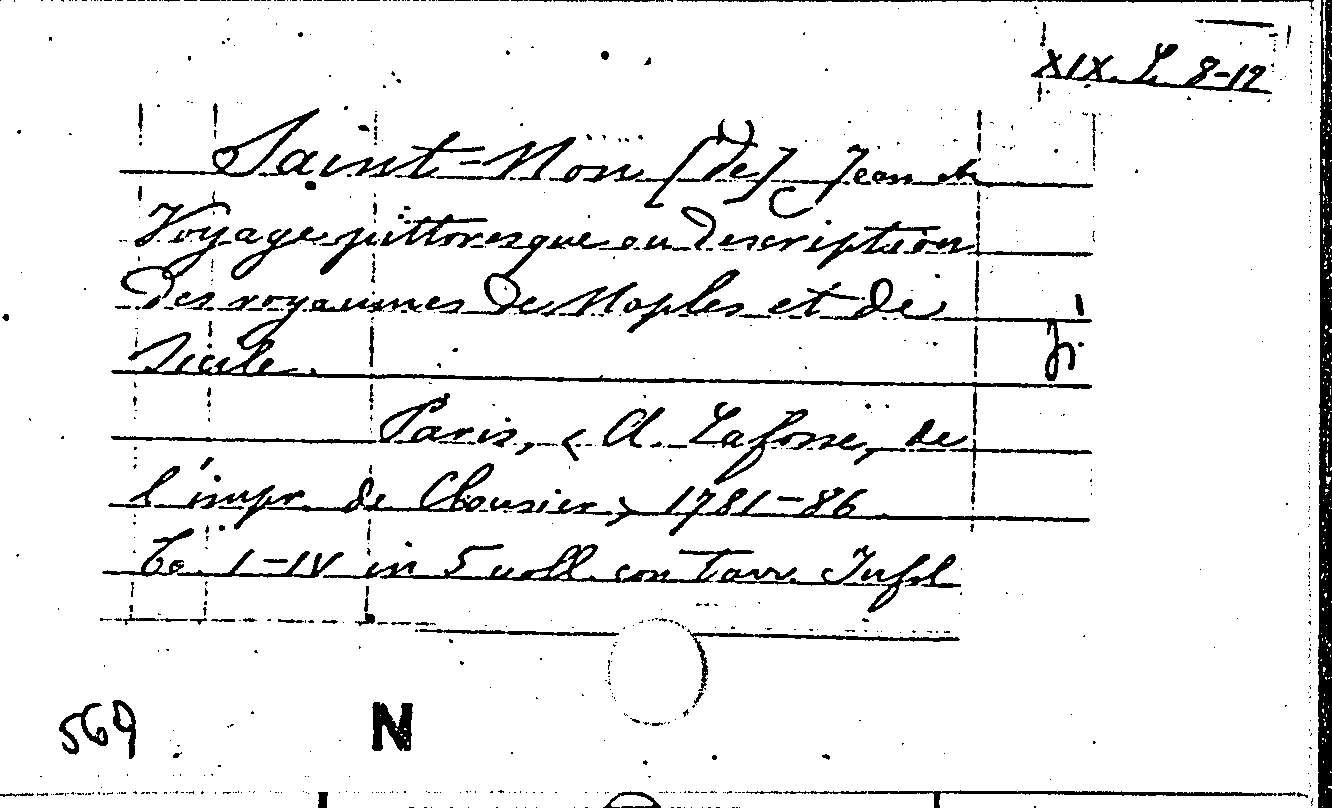 XIX. L. 8-12
Saint-Non [de], Jean
Voyage pittoresque ou description
des royaumes de Naples et de
Sicile.
Paris, < A. Lafosse, de
l'impr. de Clousier > 1781-86.
To. I-IV in 5 voll. con tavv. In fol
569
N